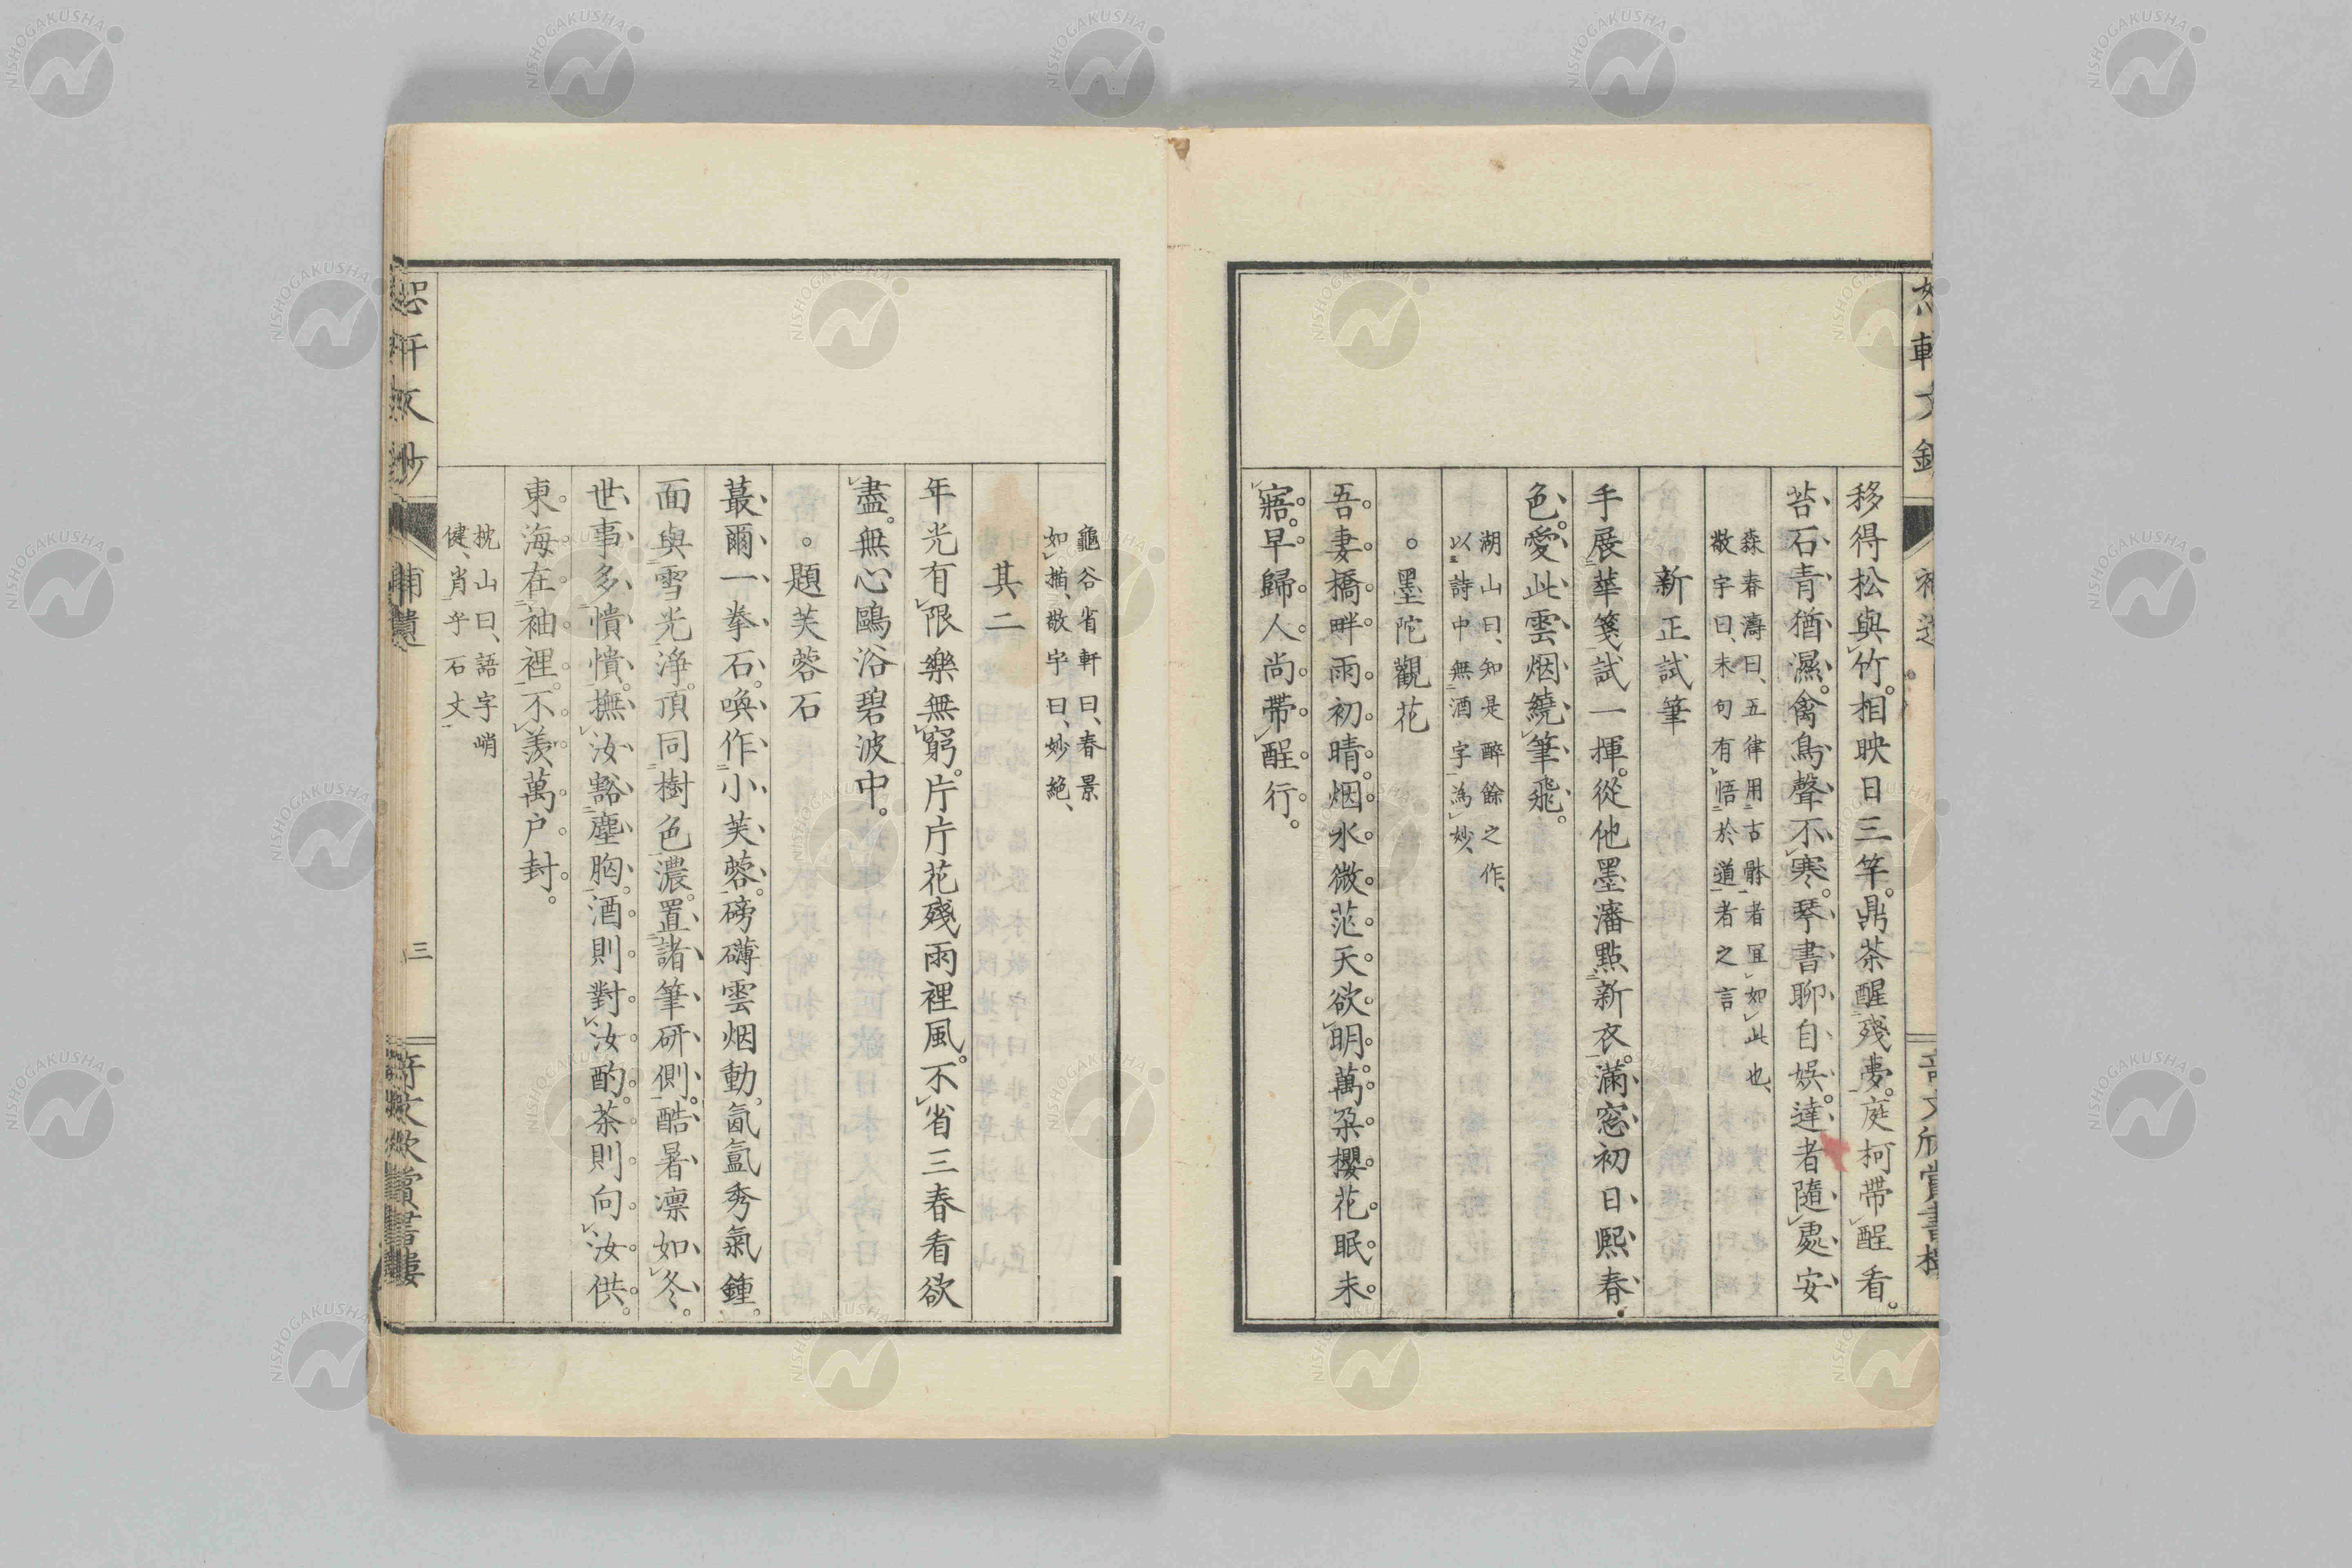 移得松與竹。相映日三竿。鼎茶醒殘夢。庭柯帶醒看。
苔石青猶濕。禽鳥聲不寒。琴書聊自娯。達者隨處安
森春濤曰、五律用古骵者宜如此也、
敬宇曰、末句有悟於道者之言
新正試筆
手展華箋試一揮。從他墨瀋點新衣。滿窓初日熙春
色。愛此雲烟繞筆飛。
湖山曰、知是醉餘之作、
以詩中無酒字為妙、
。墨陀觀花
吾妻橋畔雨初晴。烟水微茫天欲明。萬朶櫻花眠未
寤。早歸人尚帶醒行。
龜谷省軒曰、春景
如描、敬宇曰、妙絶、
其二
年光有限樂無窮。片片花殘雨裡風。不省三春看欲
盡。無心鷗浴碧波中。
。題芙蓉石
蕞爾一拳石。喚作小芙蓉。磅礴雲烟動。氤氳秀氣鍾。
面與雪光淨。頂同樹色濃。置諸筆研側。酷暑凛如冬。
世事多憒憒。撫汝豁塵胸。酒則對汝酌。茶則向汝供。
東海在袖裡。不羨萬户封。
枕山曰、語字峭
健、肖乎石丈、
補遺
三
奇文欣賞書樓
NISHOGAKUSHA